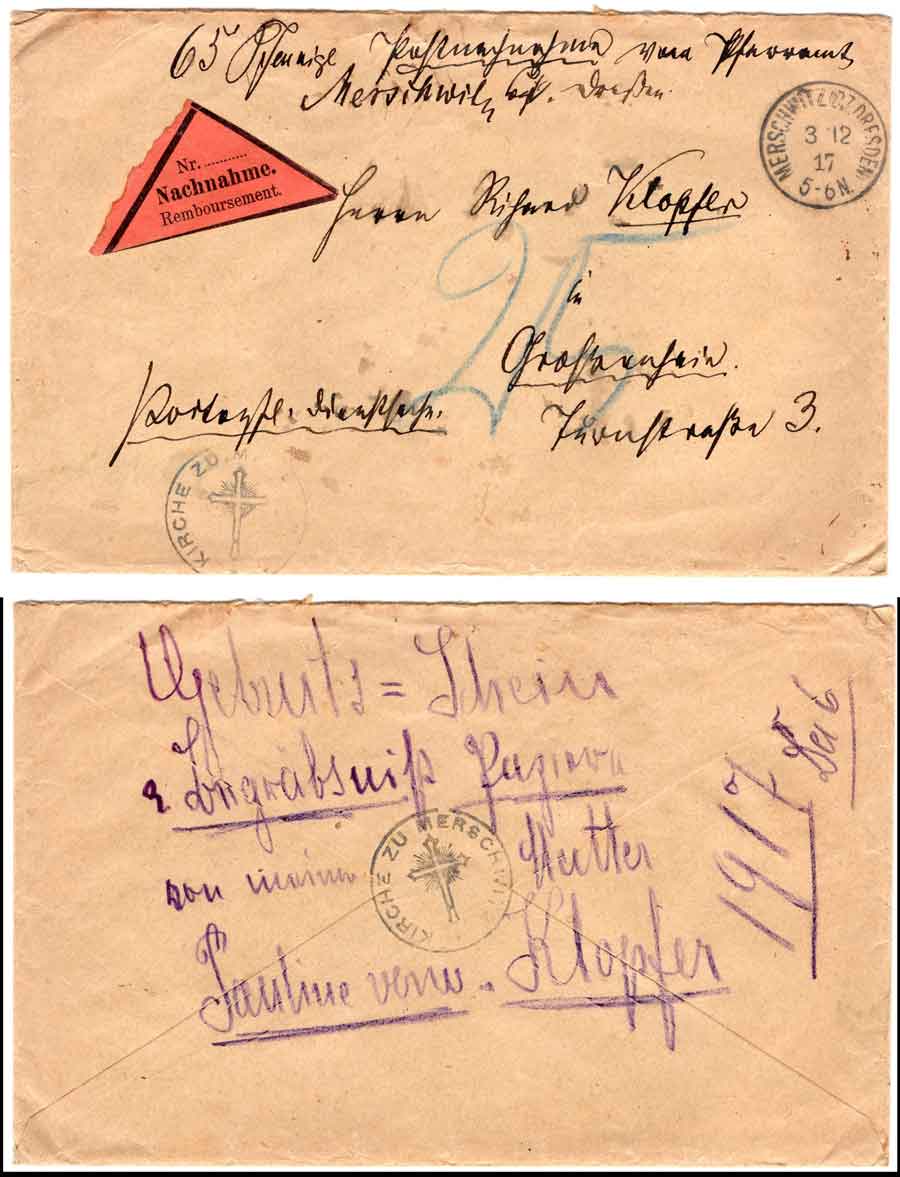 65 Pfennige Postnachnahme vom Pfarramt
Merschwitz Dresden.
MERSCHWITZ BZ. DRESDEN
3 12
17
5-6N.
Nr. ............
Nachnahme.
Remboursement.
Herrn Richard Klopfer
in
25
Großenhain.
Portopfl. Dienstsache.
Turnstraße 3.
KIRCHE ZU
Geburts=Schein
Papiere
von meiner Mutter
KIRCHE ZU MERSCHWITZ
Pauline verw. Klopfer
1917